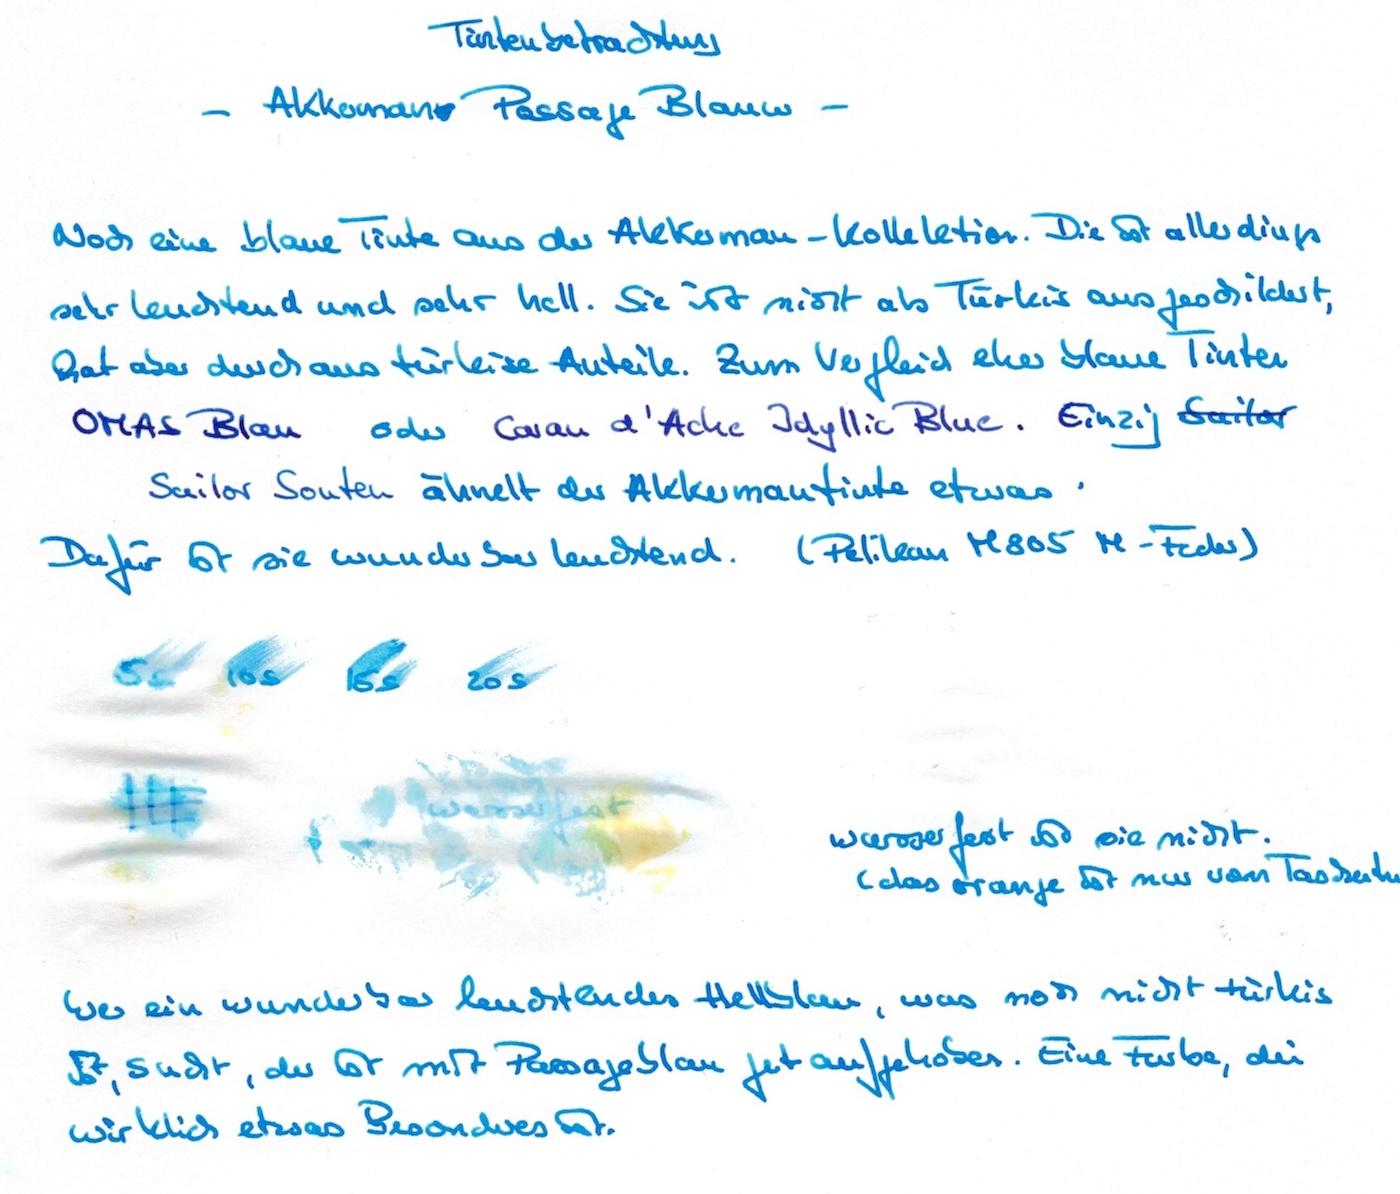 Tintenbetrachtung
- Akkerman Passage Blauw -
Noch eine blaue Tinte aus der Akkerman-Kollektion. Die ist allerdings
sehr leuchtend und sehr hell. Sie ist nicht als Türkis ausgeschildert,
hat aber durchaus türkise Anteile. Zum Vergleich eher blaue Tinten
OMAS Blau oder Caran d'Ache Idyllic Blue. Einzig Sailor
Sailor Souten ähnelt der Akkermantinte etwas.
Dafür ist sie wunderbar leuchtend. (Pelikan M805 M-Feder)
5s 10s 15s 20s
wasserfest
wasserfest ist sie nicht.
(das orange ist nur vom
Wer ein wunderbar leuchtendes Hellblau, was noch nicht türkis
ist, sucht, der ist mit Passageblau gut aufgehoben. Eine Farbe, die
wirklich etwas Besonderes ist.